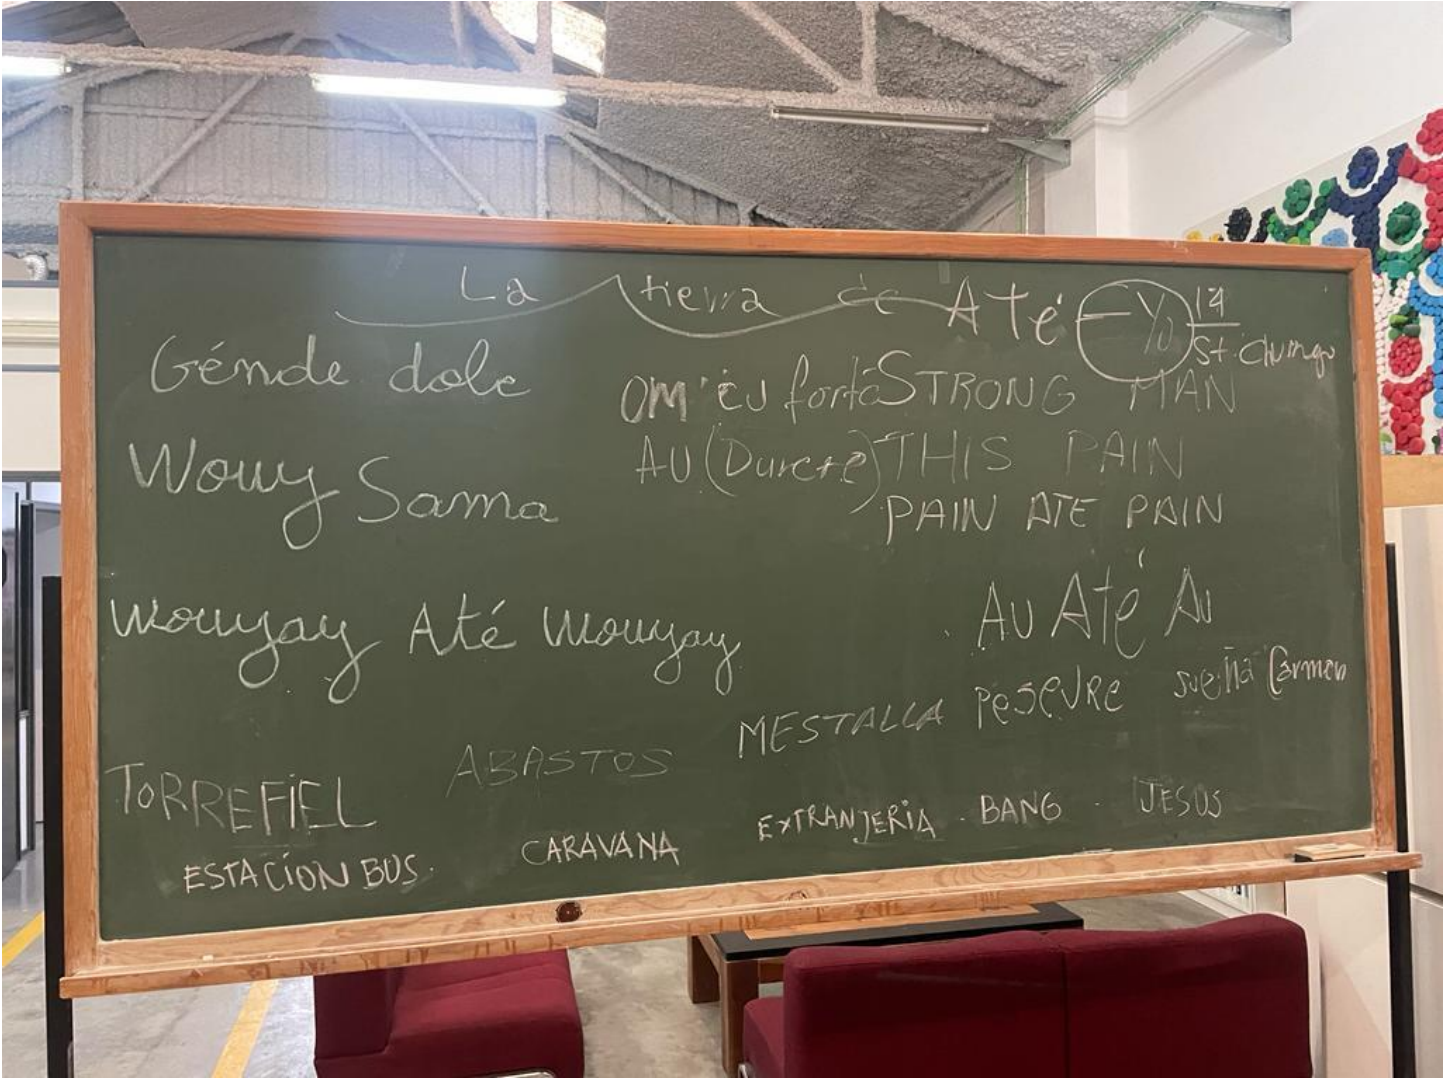 La tierra de Até - Yo 14
St. Chumgo
Génde dole
OM' eU forté STRONG MAN
Wouy Sama
AU (Dureté) THIS PAIN
PAIN ATE PAIN
Wouyay Até Wouyay
AU Até AU
MESTALLA PESEVRE sueña Carmen
TORREFIEL ABASTOS
ESTACION BUS. CARAVANA EXTRANJERIA . BANG . JESUS